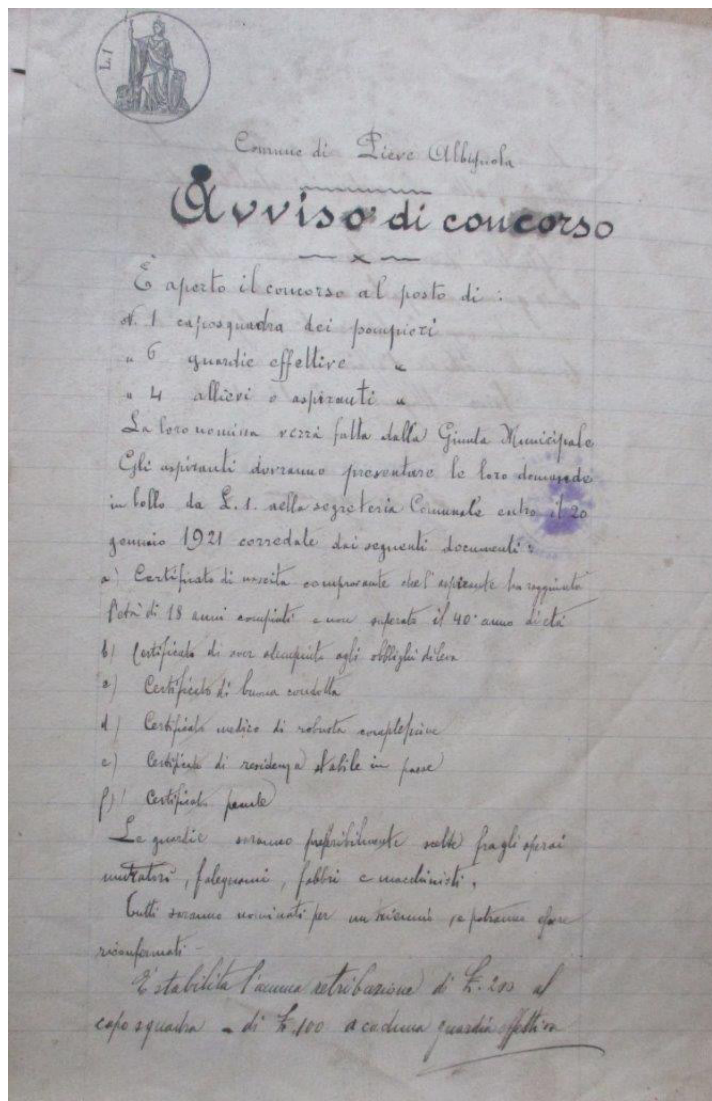 L. 1
Comune di Pieve Albignola
Avviso di concorso
È aperto il concorso al posto di :
N. 1 caposquadra dei pompieri
" 6 guardie effettive "
" 4 allievi o aspiranti "
La loro nomina verrà fatta dalla Giunta Municipale
Gli aspiranti dovranno presentare le loro domande
in bollo da L. 1. nella segreteria Comunale entro il 20
gennaio 1921 corredate dai seguenti documenti :
a) Certificato di nascita comprovante che l'aspirante ha raggiunto
l'età di 18 anni compiuti e non superato il 40° anno di età
b) Certificato di aver adempiuto agli obblighi di leva
c) Certificato di buona condotta
d) Certificato medico di robusta complessione
e) Certificato di residenza stabile in paese
f) Certificato penale
Le guardie saranno preferibilmente scelte fra gli operai
muratori, falegnami, fabbri e macchinisti.
Tutti saranno nominati per un triennio, e potranno essere
riconfermati -
È stabilita l'annua retribuzione di L. 200 al
capo squadra - di L. 100 a caduna guardia effettiva